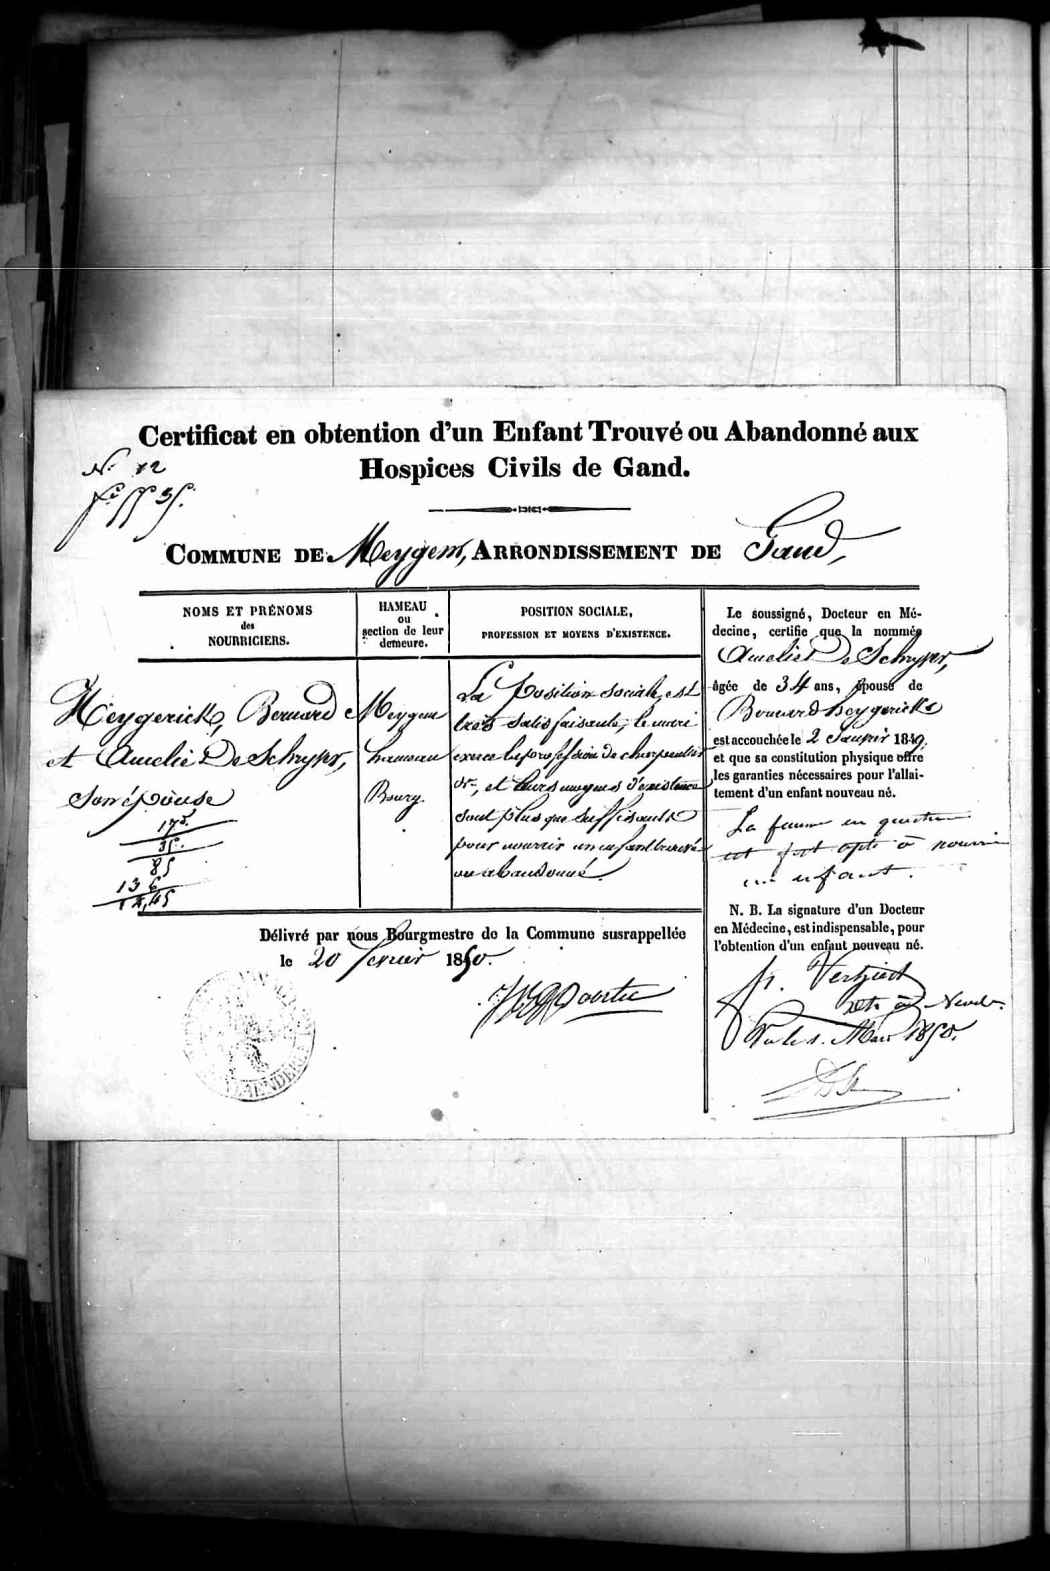 Certificat en obtention d'un Enfant Trouvé ou Abandonné aux
Hospices Civils de Gand.
N. 12
COMMUNE DE Meygem, ARRONDISSEMENT DE Gand,
NOMS ET PRÉNOMS
des
NOURRICIERS.
Heygerick, Bernard
et Amelie De Schryver,
son épouse
175.
35.
85
136
HAMEAU
ou
section de leur
demeure.
Meygem
hameau
Bourg.
POSITION SOCIALE,
PROFESSION ET MOYENS D'EXISTENCE.
La Position sociale est
très satisfaisante, le mari
exerce la profession de charpentier
&c, et leurs moyens d'existence
sont plus que suffisants
pour nourrir un enfant trouvé
ou abandonné.
Le soussigné, Docteur en Mé-
decine, certifie que la nommée
Amelie De Schryver,
âgée de 34 ans, épouse de
Bernard Heygerick
est accouchée le 2 Janvier 1849.
et que sa constitution physique offre
les garanties nécessaires pour l'allai-
tement d'un enfant nouveau né.
La femme en question
est fort apte à nourrir
un enfant.
N. B. La signature d'un Docteur
en Médecine, est indispensable, pour
l'obtention d'un enfant nouveau né.
à Nevele.
Mars 1850.
Délivré par nous Bourgmestre de la Commune susrappellée
le 20 fevrier 1850.